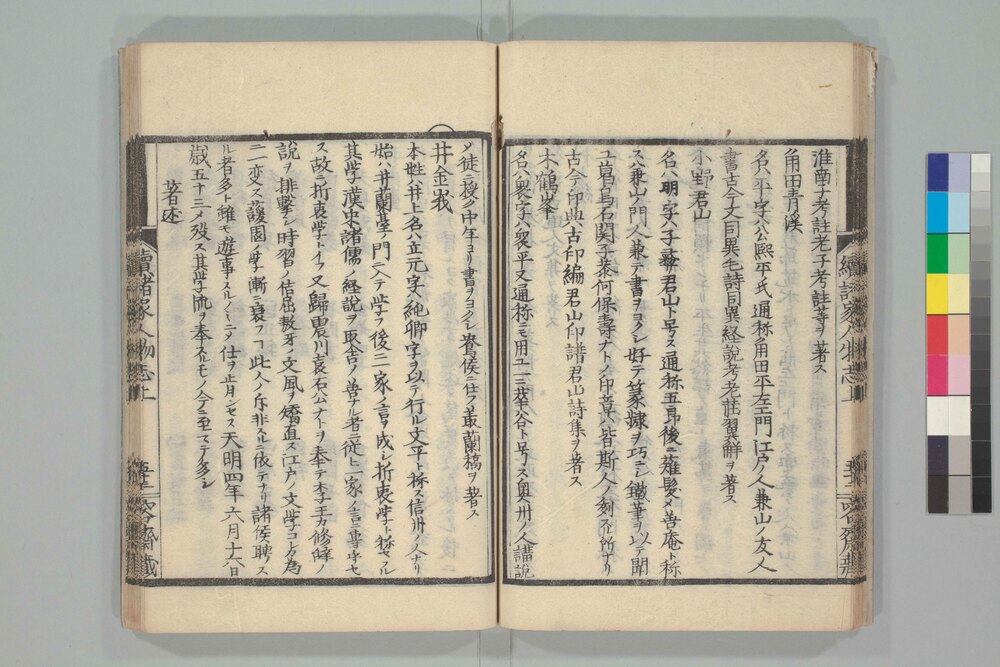 淮南子考註老子考註等ヲ著ス
角田青溪
名ハ平字ハ公熙平ノ氏通称角田平左エ門江戸ノ人兼山ノ友人
書古今文同異毛詩同異経説考老荘翼解ヲ著ス
小野君山
名ハ明字ハ子君山ト号ス通称五郎後ニ薙髪メ善庵ト称
ス兼山ノ門人兼テ書ヲヨクシ好テ篆隷ヲ巧ニシ鐵筆ヲ以テ聞
ユ葛烏石関子泰何保壽ナトノ印章ハ皆斯人ノ刻スル所ナリ
古今印典古印編君山印譜君山詩集ヲ著ス
木鶴峯
名ハ衆字ハ衆平又通称ニモ用ユ三華谷ト号ス奥州ノ人講説
ノ徒ニ授ク中年ヨリ書ヲヨクシ鴦侯ニ仕フ叢蘭稿ヲ著ス
井金峨
本姓ハ井上名ハ立元字ハ純卿字ヲ以テ行ル文平ト称ス信州ノ人ナリ
始ハ井蘭臺ノ門ニ入テ学フ後ニ一家ノ言ヲ成シ折衷学ト称セラル
其学漢宋諸儒ノ経説ヲ取舎ノ善ナル者ニ従ヒ一家ノ言ニ専ニセ
ス故ニ折衷学ト イフ又歸震川袁石公ナトヲ奉テ李王カ修辞ノ
説ヲ排撃シ時習ノ佶屈敖牙ノ文風ヲ矯直ス江戸ノ文学コヽカ為
ニ一変ス蘐園ノ学漸ニ衰フコ此人ノ斥非スルニ依テナリ諸侯聘ス
ル者多ト雖モ遊事スルノミニテ仕ヲ止月シセス天明四年六月十六日
歳五十三メ歿ス其学流ヲ奉スルモノ今ニ至マテ多シ
著述
續諸家人物志上
續諸家人物志上